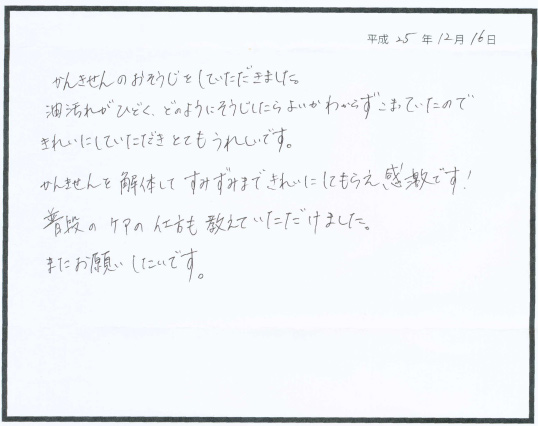 平成 25 年 12 月 16 日
かんきせんのおそうじをしていただきました。
油汚れがひどく、どのようにそうじしたらよいかわからずこまっていたので
きれいにしていただきとてもうれしいです。
かんきせんを解体してすみずみまできれいにしてもらえ感激です！
普段のケアの仕方も教えていただけました。
またお願いしたいです。